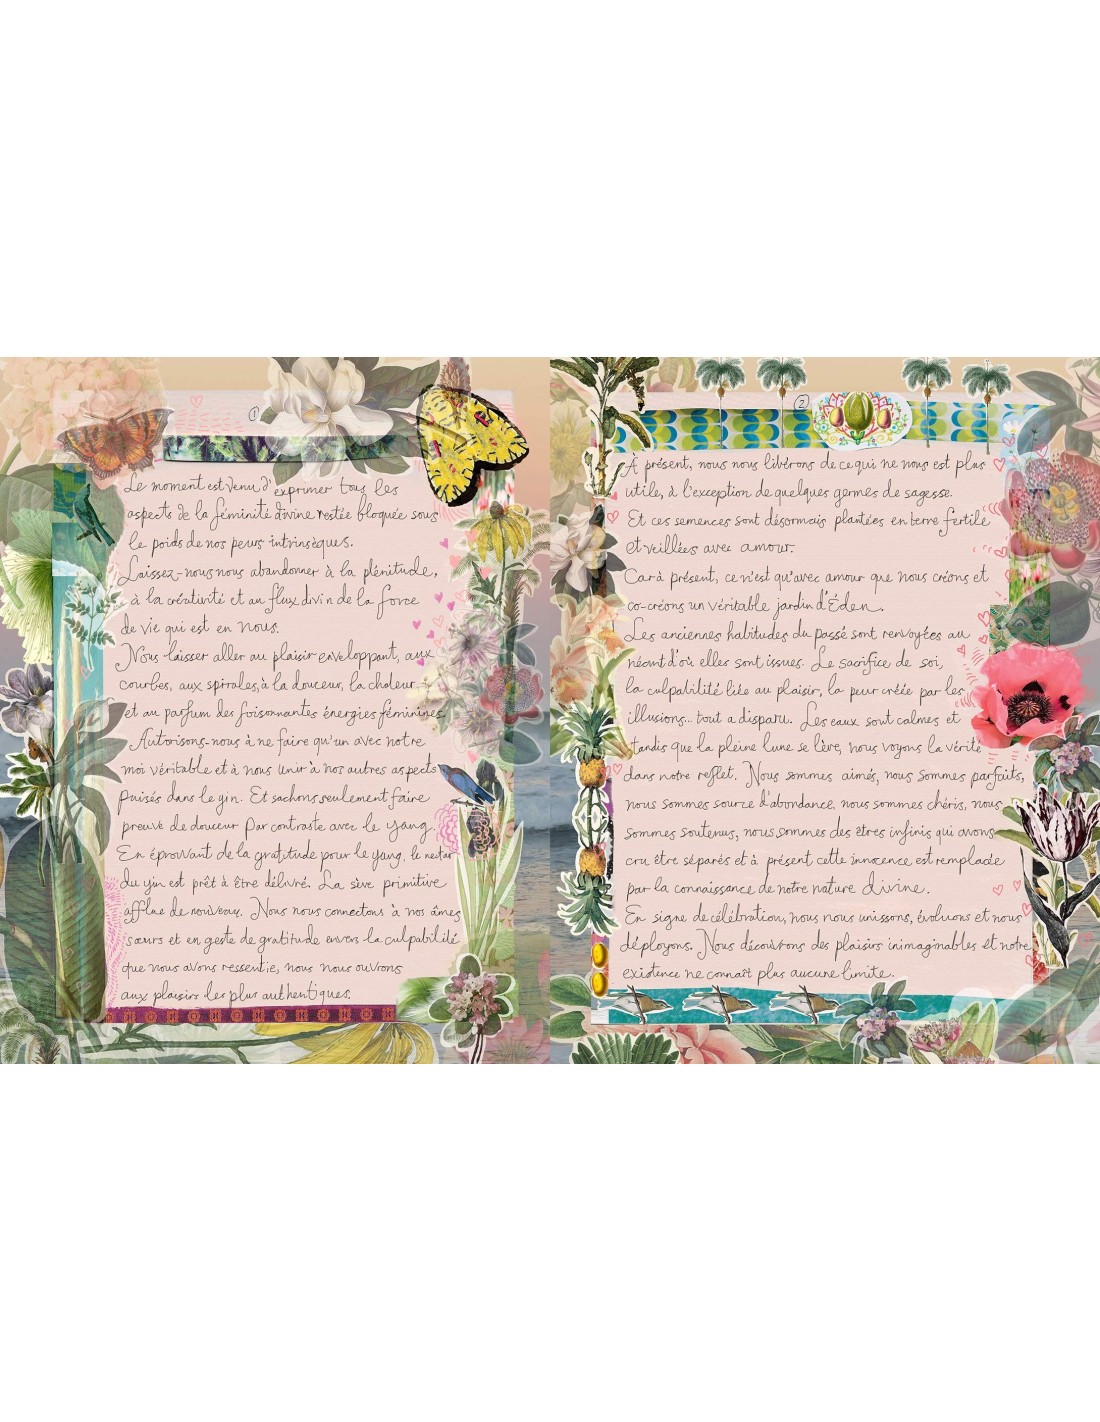 1
Le moment est venu d'exprimer tous les
aspects de la féminité divine restée bloquée sous
le poids de nos peurs intrinsèques.
Laissez-nous nous abandonner à la plénitude,
à la créativité et au flux divin de la force
de vie qui est en nous.
Nous laisser aller au plaisir enveloppant, aux
courbes, aux spirales, à la douceur, la chaleur
et au parfum des foisonnantes énergies féminines.
Autorisons-nous à ne faire qu'un avec notre
moi véritable et à nous unir à nos autres aspects
puisés dans le yin. Et sachons seulement faire
preuve de douceur par contraste avec le yang.
En éprouvant de la gratitude pour le yang, le nectar
du yin est prêt à être délivré. La sève primitive
afflue de nouveau. Nous nous connectons à nos âmes
sœurs et en geste de gratitude envers la culpabilité
que nous avons ressentie, nous nous ouvrons
aux plaisirs les plus authentiques.
2
A présent, nous nous libérons de ce qui ne nous est plus
utile, à l'exception de quelques germes de sagesse.
Et ces semences sont désormais plantées en terre fertile
et veillées avec amour.
Car à présent, ce n'est qu'avec amour que nous créons et
co-créons un véritable jardin d'Éden.
Les anciennes habitudes du passé sont renvoyées au
néant d'où elles sont issues. Le sacrifice de soi,
la culpabilité liée au plaisir, la peur créée par les
illusions... tout a disparu. Les eaux sont calmes et
tandis que la pleine lune se lève, nous voyons la vérité
dans notre reflet. Nous sommes aimés, nous sommes parfaits,
nous sommes source d'abondance, nous sommes chéris, nous
sommes soutenus, nous sommes des êtres infinis qui avons
cru être séparés et à présent cette innocence est remplacée
par la connaissance de notre nature divine.
En signe de célébration, nous nous unissons, évoluons et nous
déployons. Nous découvrons des plaisirs inimaginables et notre
existence ne connaît plus aucune limite.